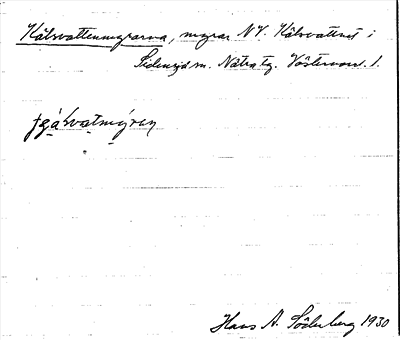 Kälsvattenmyrarna, myrar NV. Kälsvattnet i
Sidensjö sn. Nätra tg. Västernorr. l.
Hans A. Söderberg 1930